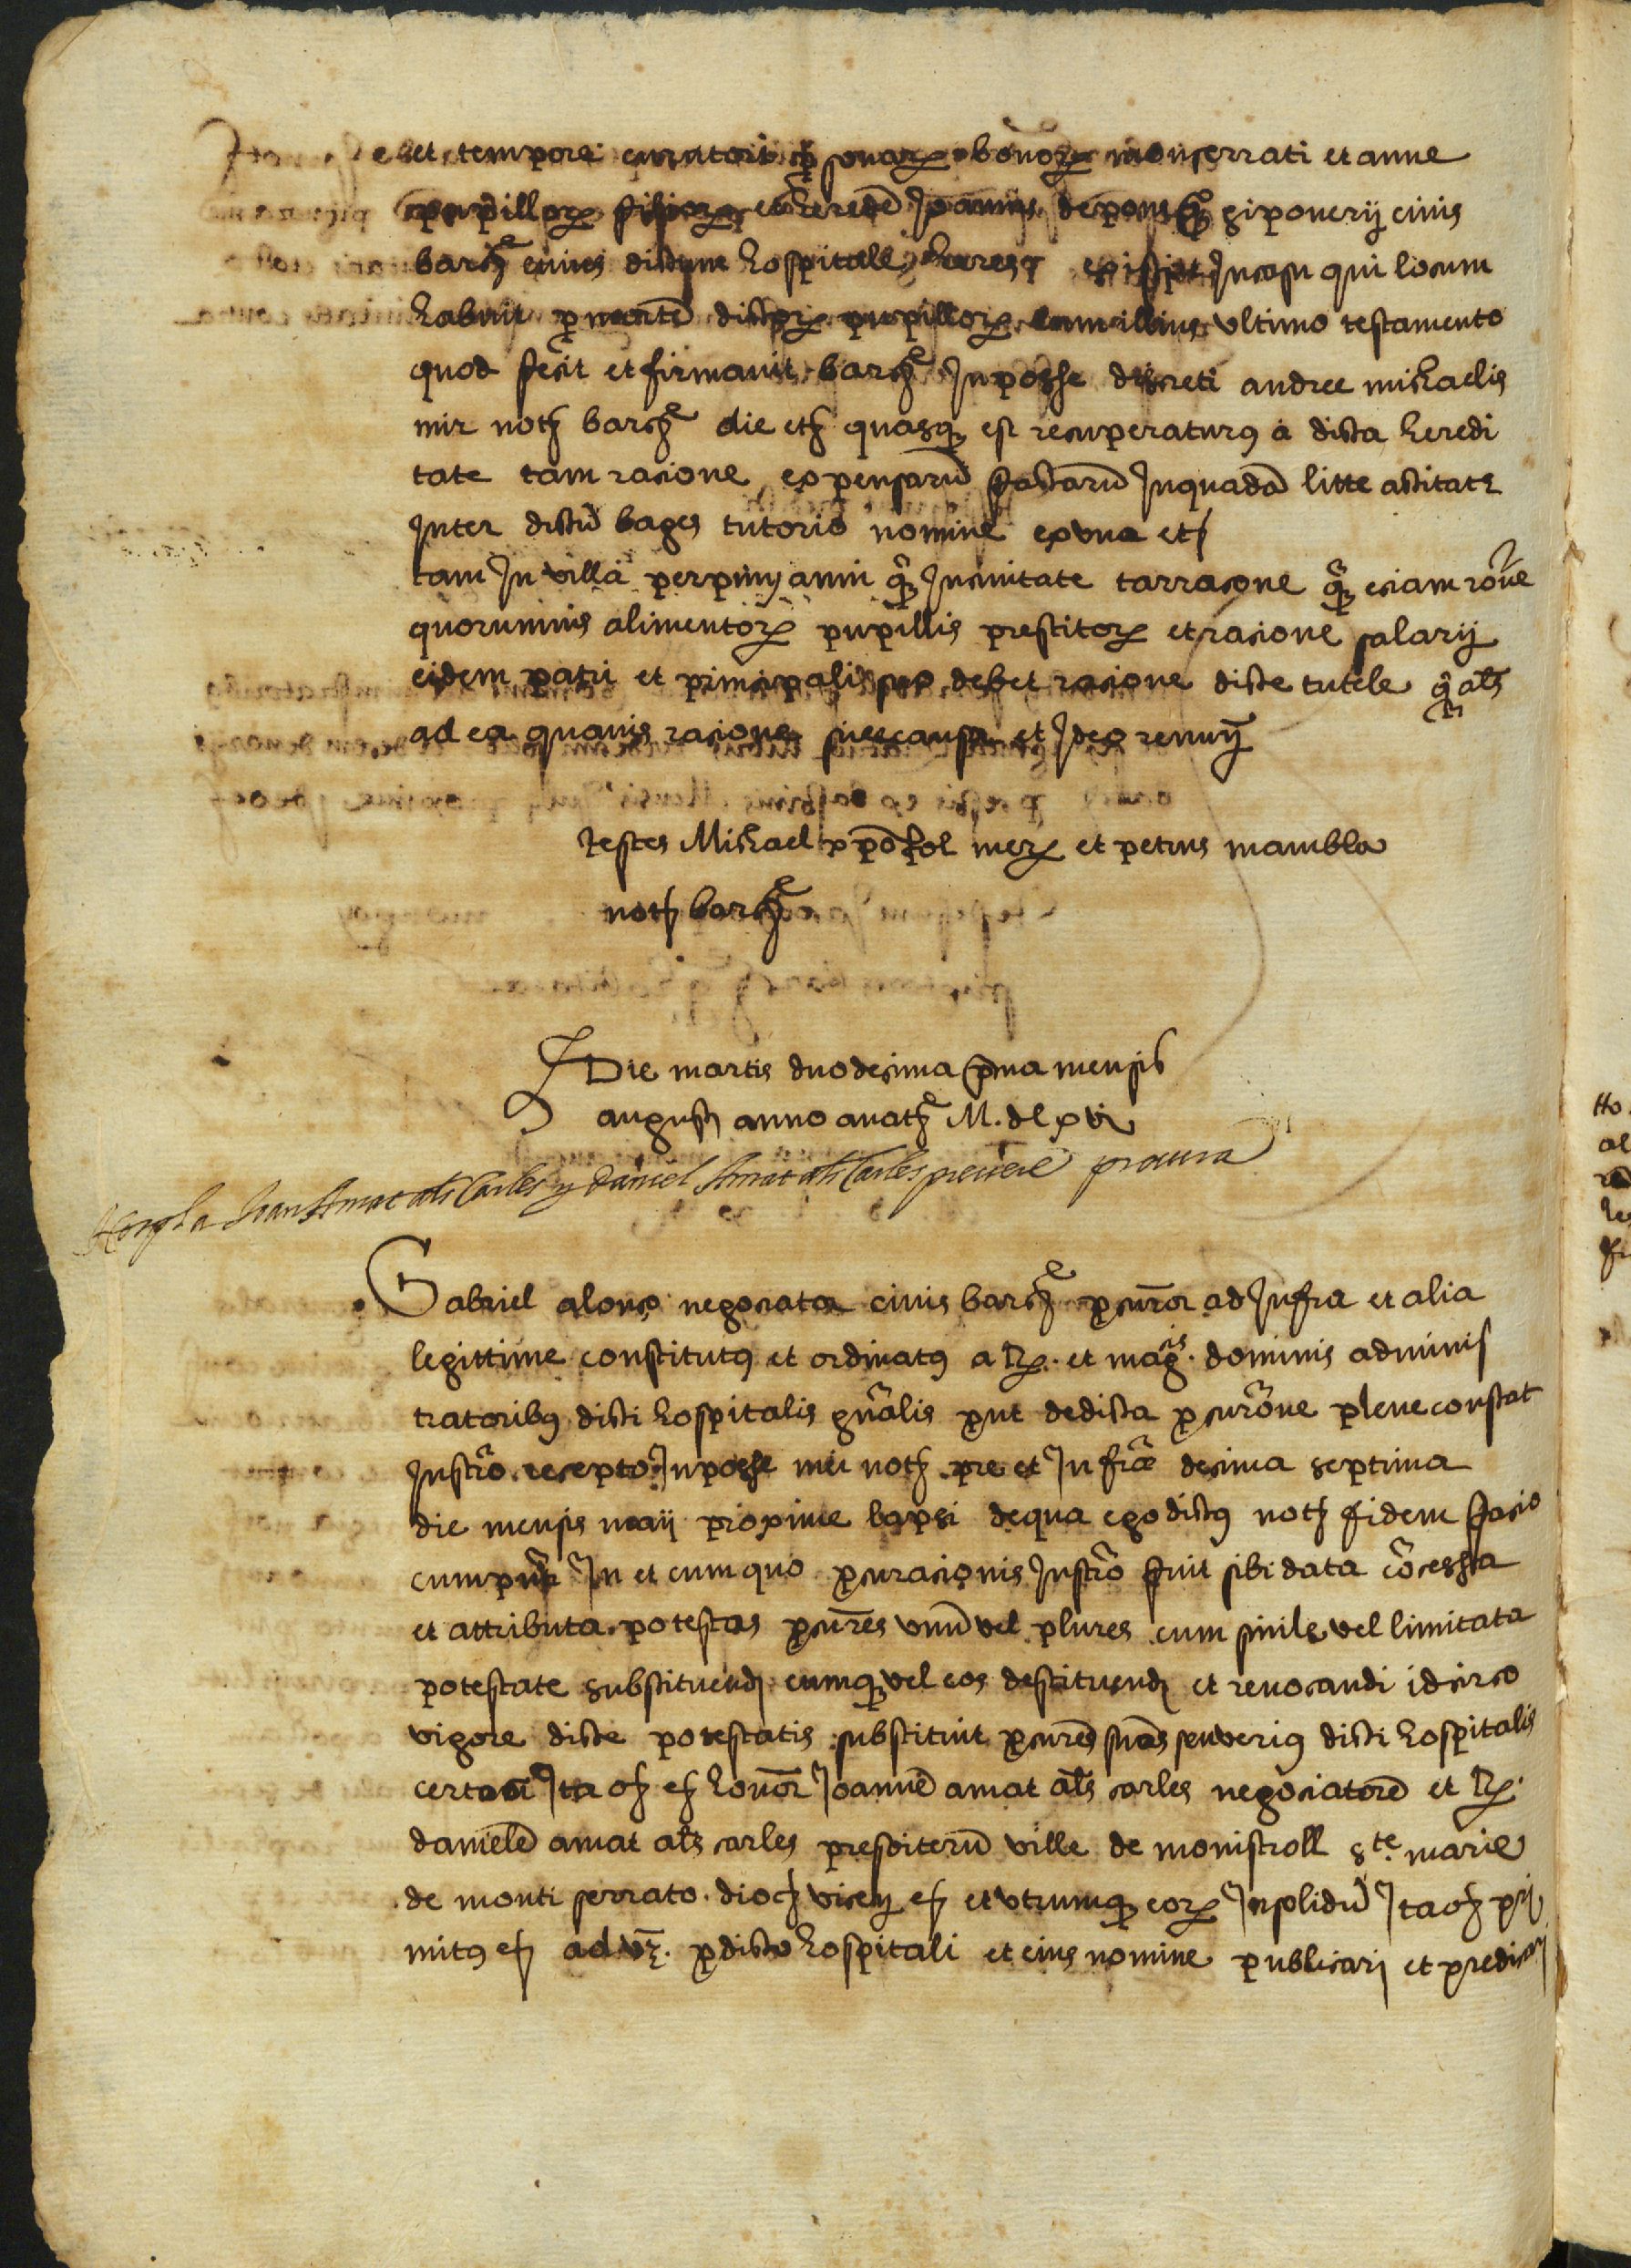 et tempore curatoris sonarum bonorum monserrati et anne
pupillorum filiorum et herede Joannis de pons giponerij civis
barchne cuius dictum hospitale heres existit In casu qui locum
habuit p morte dictorum pupillorum cum illius vltimo testamento
quod fecit et firmauit barchne In posse discreti andree michaelis
mir noth barchne die eth quasq est recuperaturus a dicta heredi
tate tam racione expensaru factaru In quada litte actitata
Inter dictu bages tutorio nomine ex vna eth
tam In villa perpinyanni q Inciuitate tarracone q eciam rone
quorumuis alimentorum pupillis prestitorum et racione salarij
eidem patri et principali suo debet racione dicte tutele q als
ad ea quauis racione siue causa et Ideo renuy
testes Michael ppofol merum et petrus mambla
noth barchne
Die martis duodecima pma mensis
augusti anno a nath M. dlxvi
Joan Amat als Carles y Daniel Amat als Carles preuere procura
Gabriel alonso negociator ciuis barchne pcuror ad Infra et alia
legittime constitutus et ordinatus a R. et magcis. dominis adminis
tratoribus dicti hospitalis gnalis put de dicta pcurone plene constat
Instro recepto In posse mei noth pre et Infra decima septima
die mensis maij proxime lapsi de qua ego dictus noth fidem facio
cum pnti In et cum quo pcuracionis Instro fuit sibi data cocessa
et attributa potestas pcures vnu vel plures cum simile vel limitata
potestate substituendj eumq vel eos destituendj et reuocandi idcirco
vigore dicte potestatis substituit pcures suos seu verius dicti hospitalis
certos Ita qh eh honor Joanne amat als carles negociatore et R.
daniele amat als carles presbiteru ville de monistroll ste. marie
de monti serrato dioch vicen eh et vtrumq eorum In solidu Ita qh pri
mitus eh ad vz. pdicto hospitali et eius nomine publicari et predicari